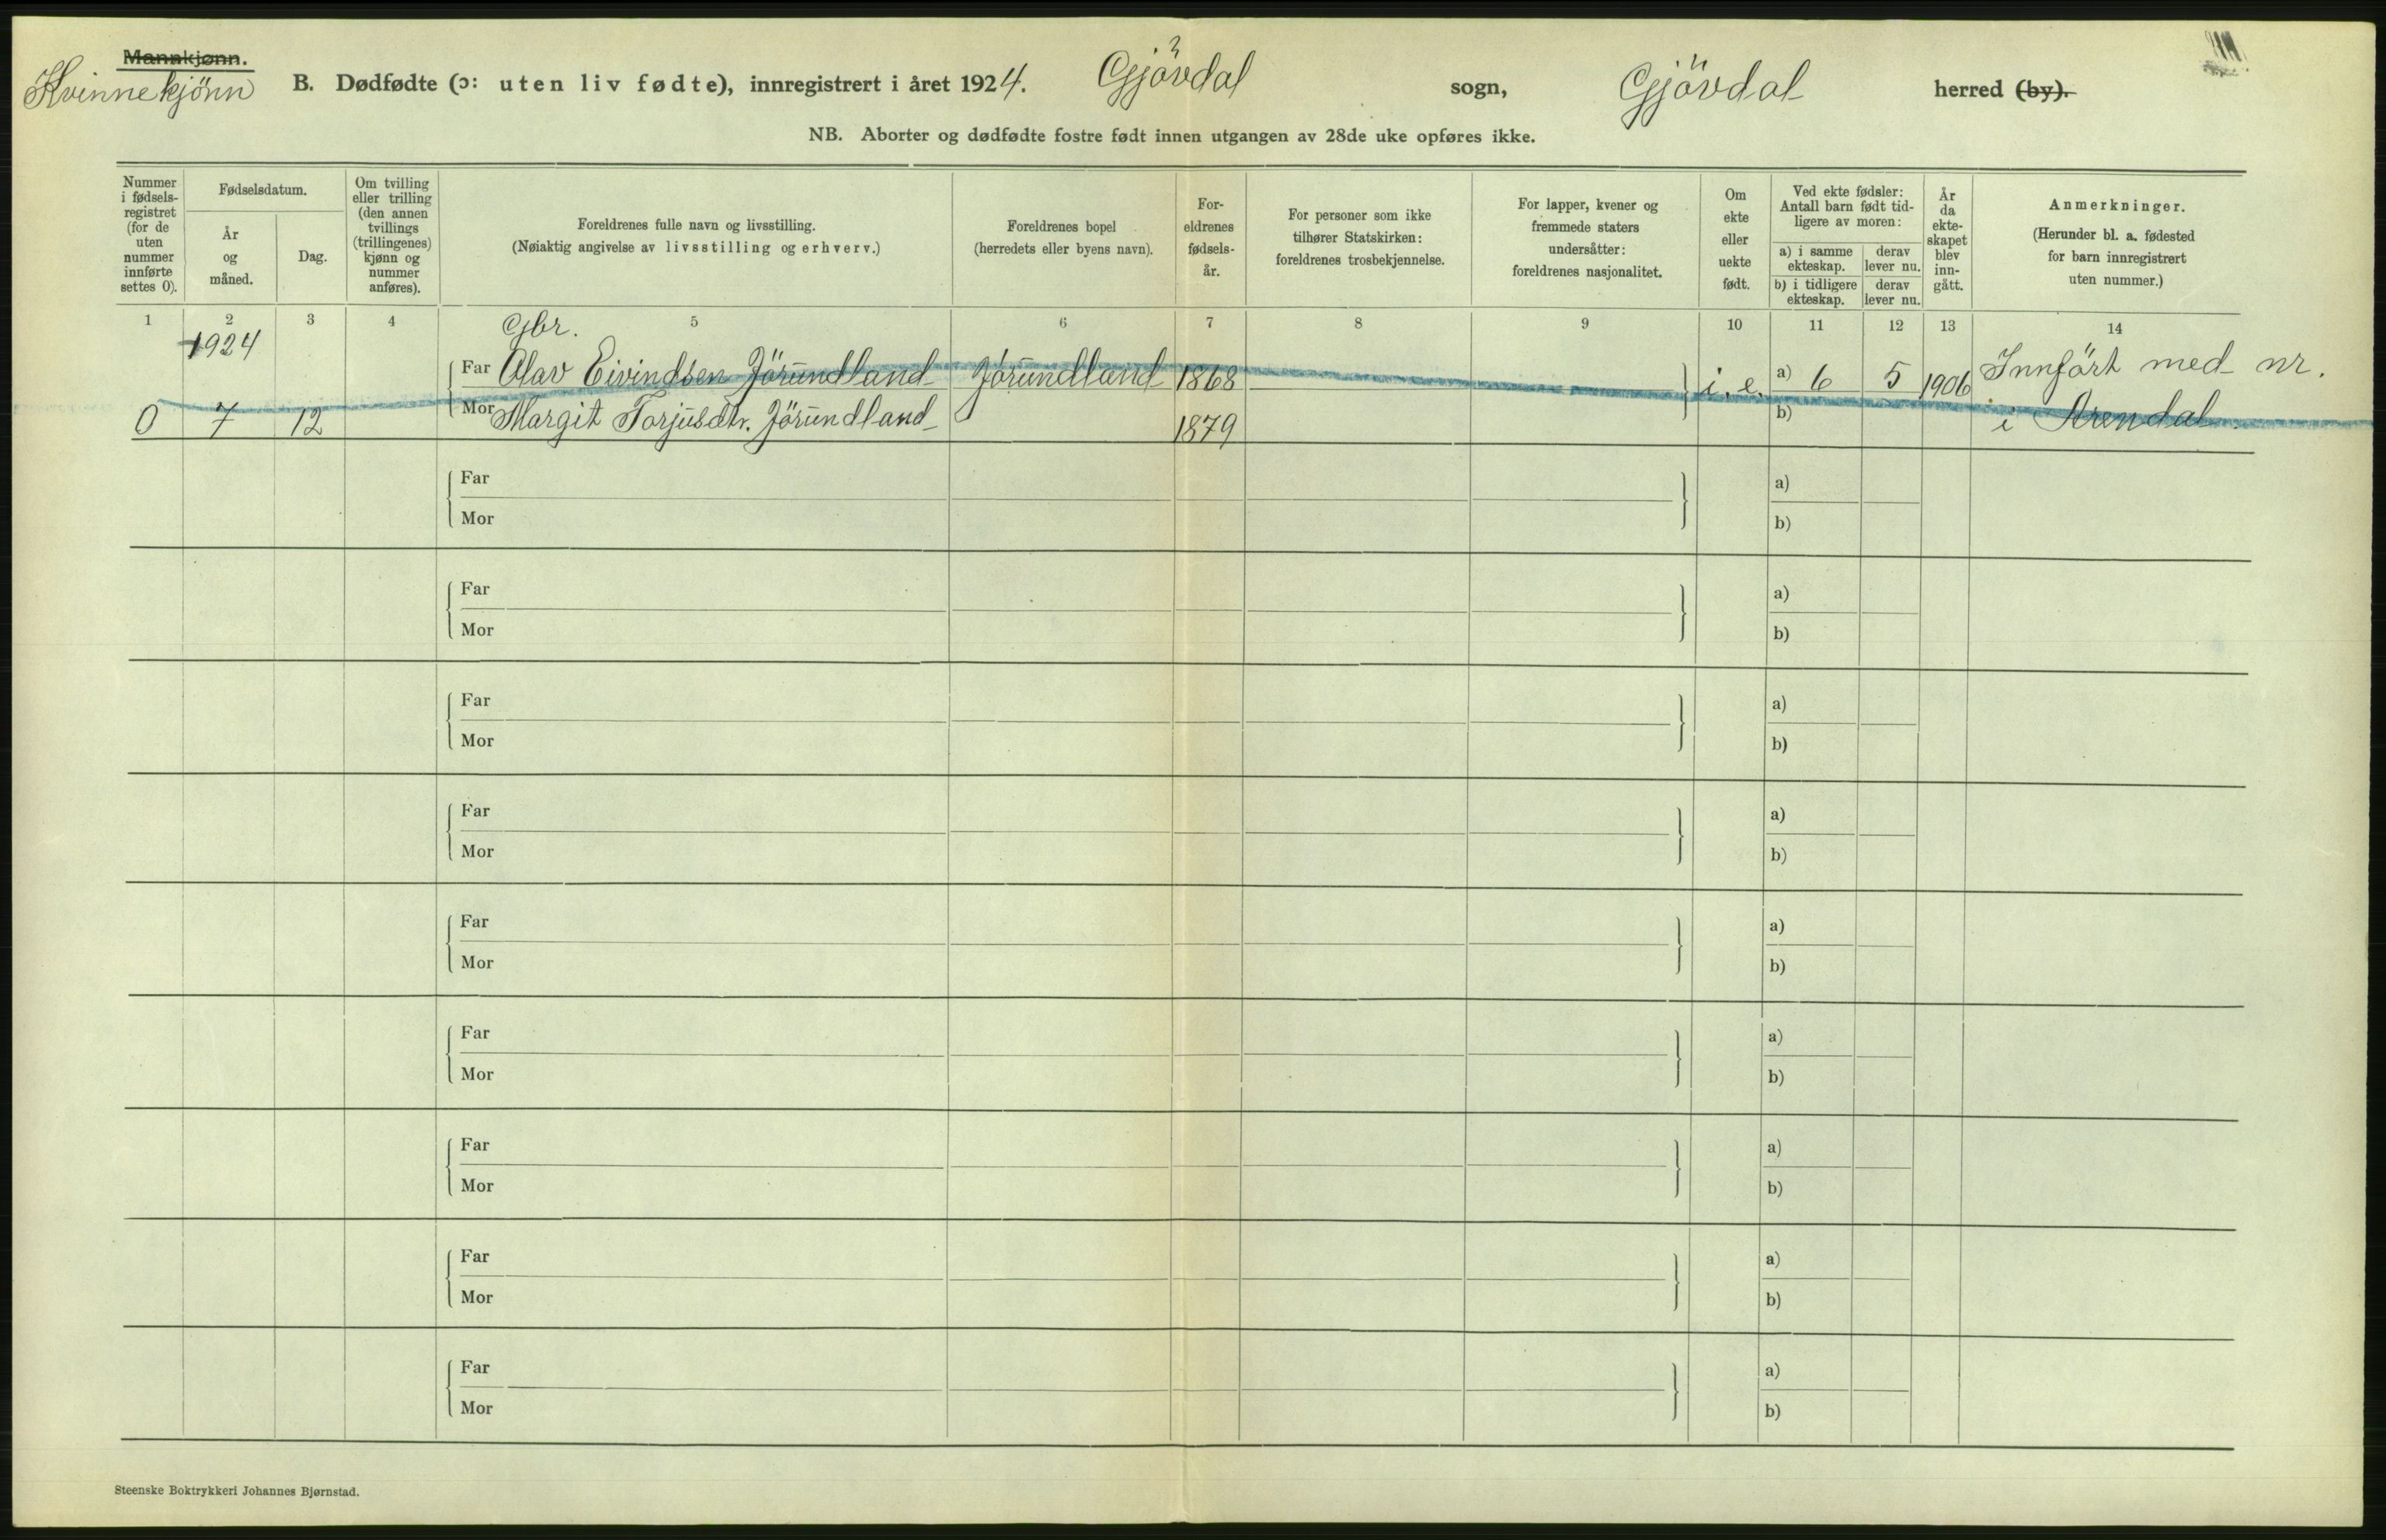 Mannkjønn.
Kvinnekjönn
B. Dødfødte (ɔ: uten liv fødte), innregistrert i året 1924. Gjövdal sogn, Gjövdal herred (by).
NB. Aborter og dødfødte fostre født innen utgangen av 28de uke opføres ikke.
Nummer
i fødsels-
registret
(for de
uten
nummer
innførte
settes 0).
Fødselsdatum.
År
og
måned.
Dag.
Om tvilling
eller trilling
(den annen
tvillings
(trillingenes)
kjønn og
nummer
anføres).
Foreldrenes fulle navn og livsstilling.
(Nøiaktig angivelse av livsstilling og erhverv.)
Foreldrenes bopel
(herredets eller byens navn).
For-
eldrenes
fødsels-
år.
For personer som ikke
tilhører Statskirken:
foreldrenes trosbekjennelse.
For lapper, kvener og
fremmede staters
undersåtter:
foreldrenes nasjonalitet.
Om
ekte
eller
uekte
født.
Ved ekte fødsler:
Antall barn født tid-
ligere av moren:
a) i samme
ekteskap.
derav
lever nu.
b) i tidligere
ekteskap.
derav
lever nu.
År
da
ekte-
skapet
blev
inn-
gått.
Anmerkninger.
(Herunder bl. a. fødested
for barn innregistrert
uten nummer.)
1 2 3 4 5 6 7 8 9 10 11 12 13 14
1924 Gbr.
Far Olav Eivindsen Jörundland Jörundland 1868 i. e. a) 6 5 1906 Innfört med nr.
0 7 12 Mor Margit Torjusdtr. Jörundland 1879 b) i Arendal.
Far a)
Mor b)
Far a)
Mor b)
Far a)
Mor b)
Far a)
Mor b)
Far a)
Mor b)
Far a)
Mor b)
Far a)
Mor b)
Far a)
Mor b)
Far a)
Mor b)
Steenske Boktrykkeri Johannes Bjørnstad.